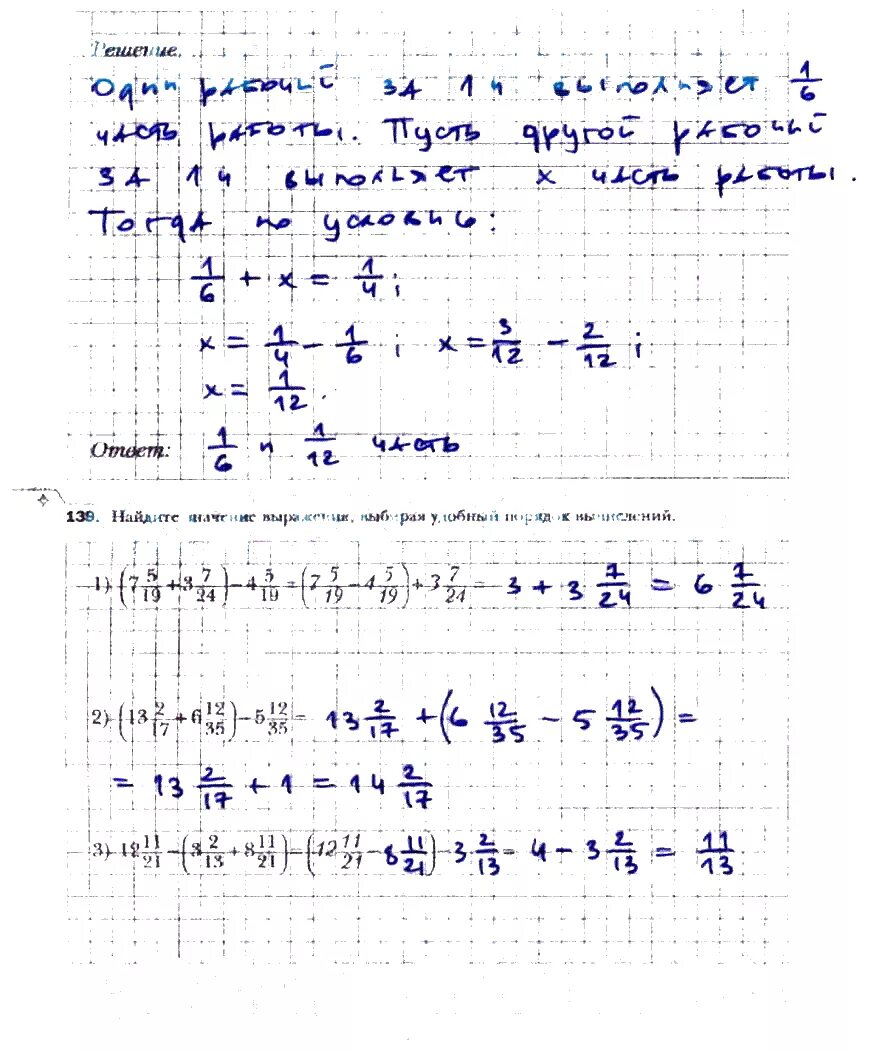 Решение.
Один рабочий за 1 ч выполняет 1/6
часть работы. Пусть другой рабочий
за 1 ч выполняет x часть работы.
Тогда по условию:
1/6 + x = 1/4;
x = 1/4 − 1/6; x = 3/12 − 2/12;
x = 1/12.
Ответ: 1/6 и 1/12 часть
139. Найдите значение выражения, выбирая удобный порядок вычислений.
1) (7 5/19 + 3 7/24) − 4 5/19 = (7 5/19 − 4 5/19) + 3 7/24 = 3 + 3 7/24 = 6 7/24
2) (13 2/17 + 6 12/35) − 5 12/35 = 13 2/17 + (6 12/35 − 5 12/35) =
= 13 2/17 + 1 = 14 2/17
3) 12 11/21 − (3 2/13 + 8 11/21) = (12 11/21 − 8 11/21) − 3 2/13 = 4 − 3 2/13 = 11/13